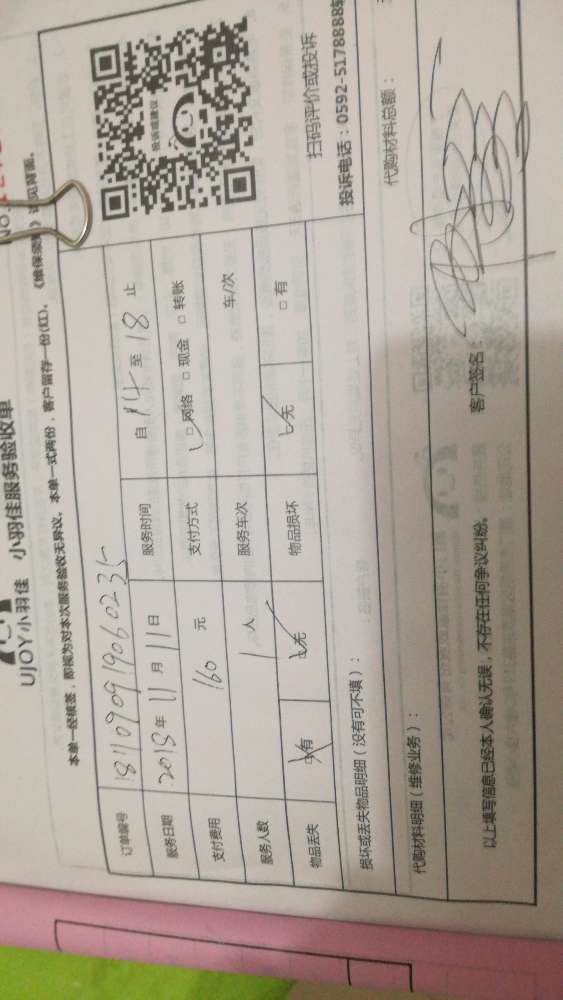 NO.
UJOY小羽佳 小羽佳服务验收单
本单一经核签，即视为对本次服务验收无异议。本单一式两份，客户留存一份(红)。
订单编号 1811090919060235
服务日期 2018年11月11日 服务时间 自 14 至 18 止
支付费用 160 元 支付方式 □网络 □现金 □转账
服务人数 1 人 服务车次 车/次
物品丢失 □有 □无 物品损坏 □无 □有
投诉或建议
扫码评价或投诉
投诉电话：0592-5178888转
损坏或丢失物品明细（没有可不填）：
代购材料明细（维修业务）： 代购材料总额：
以上填写信息已经本人确认无误，不存在任何争议纠纷。 客户签名：